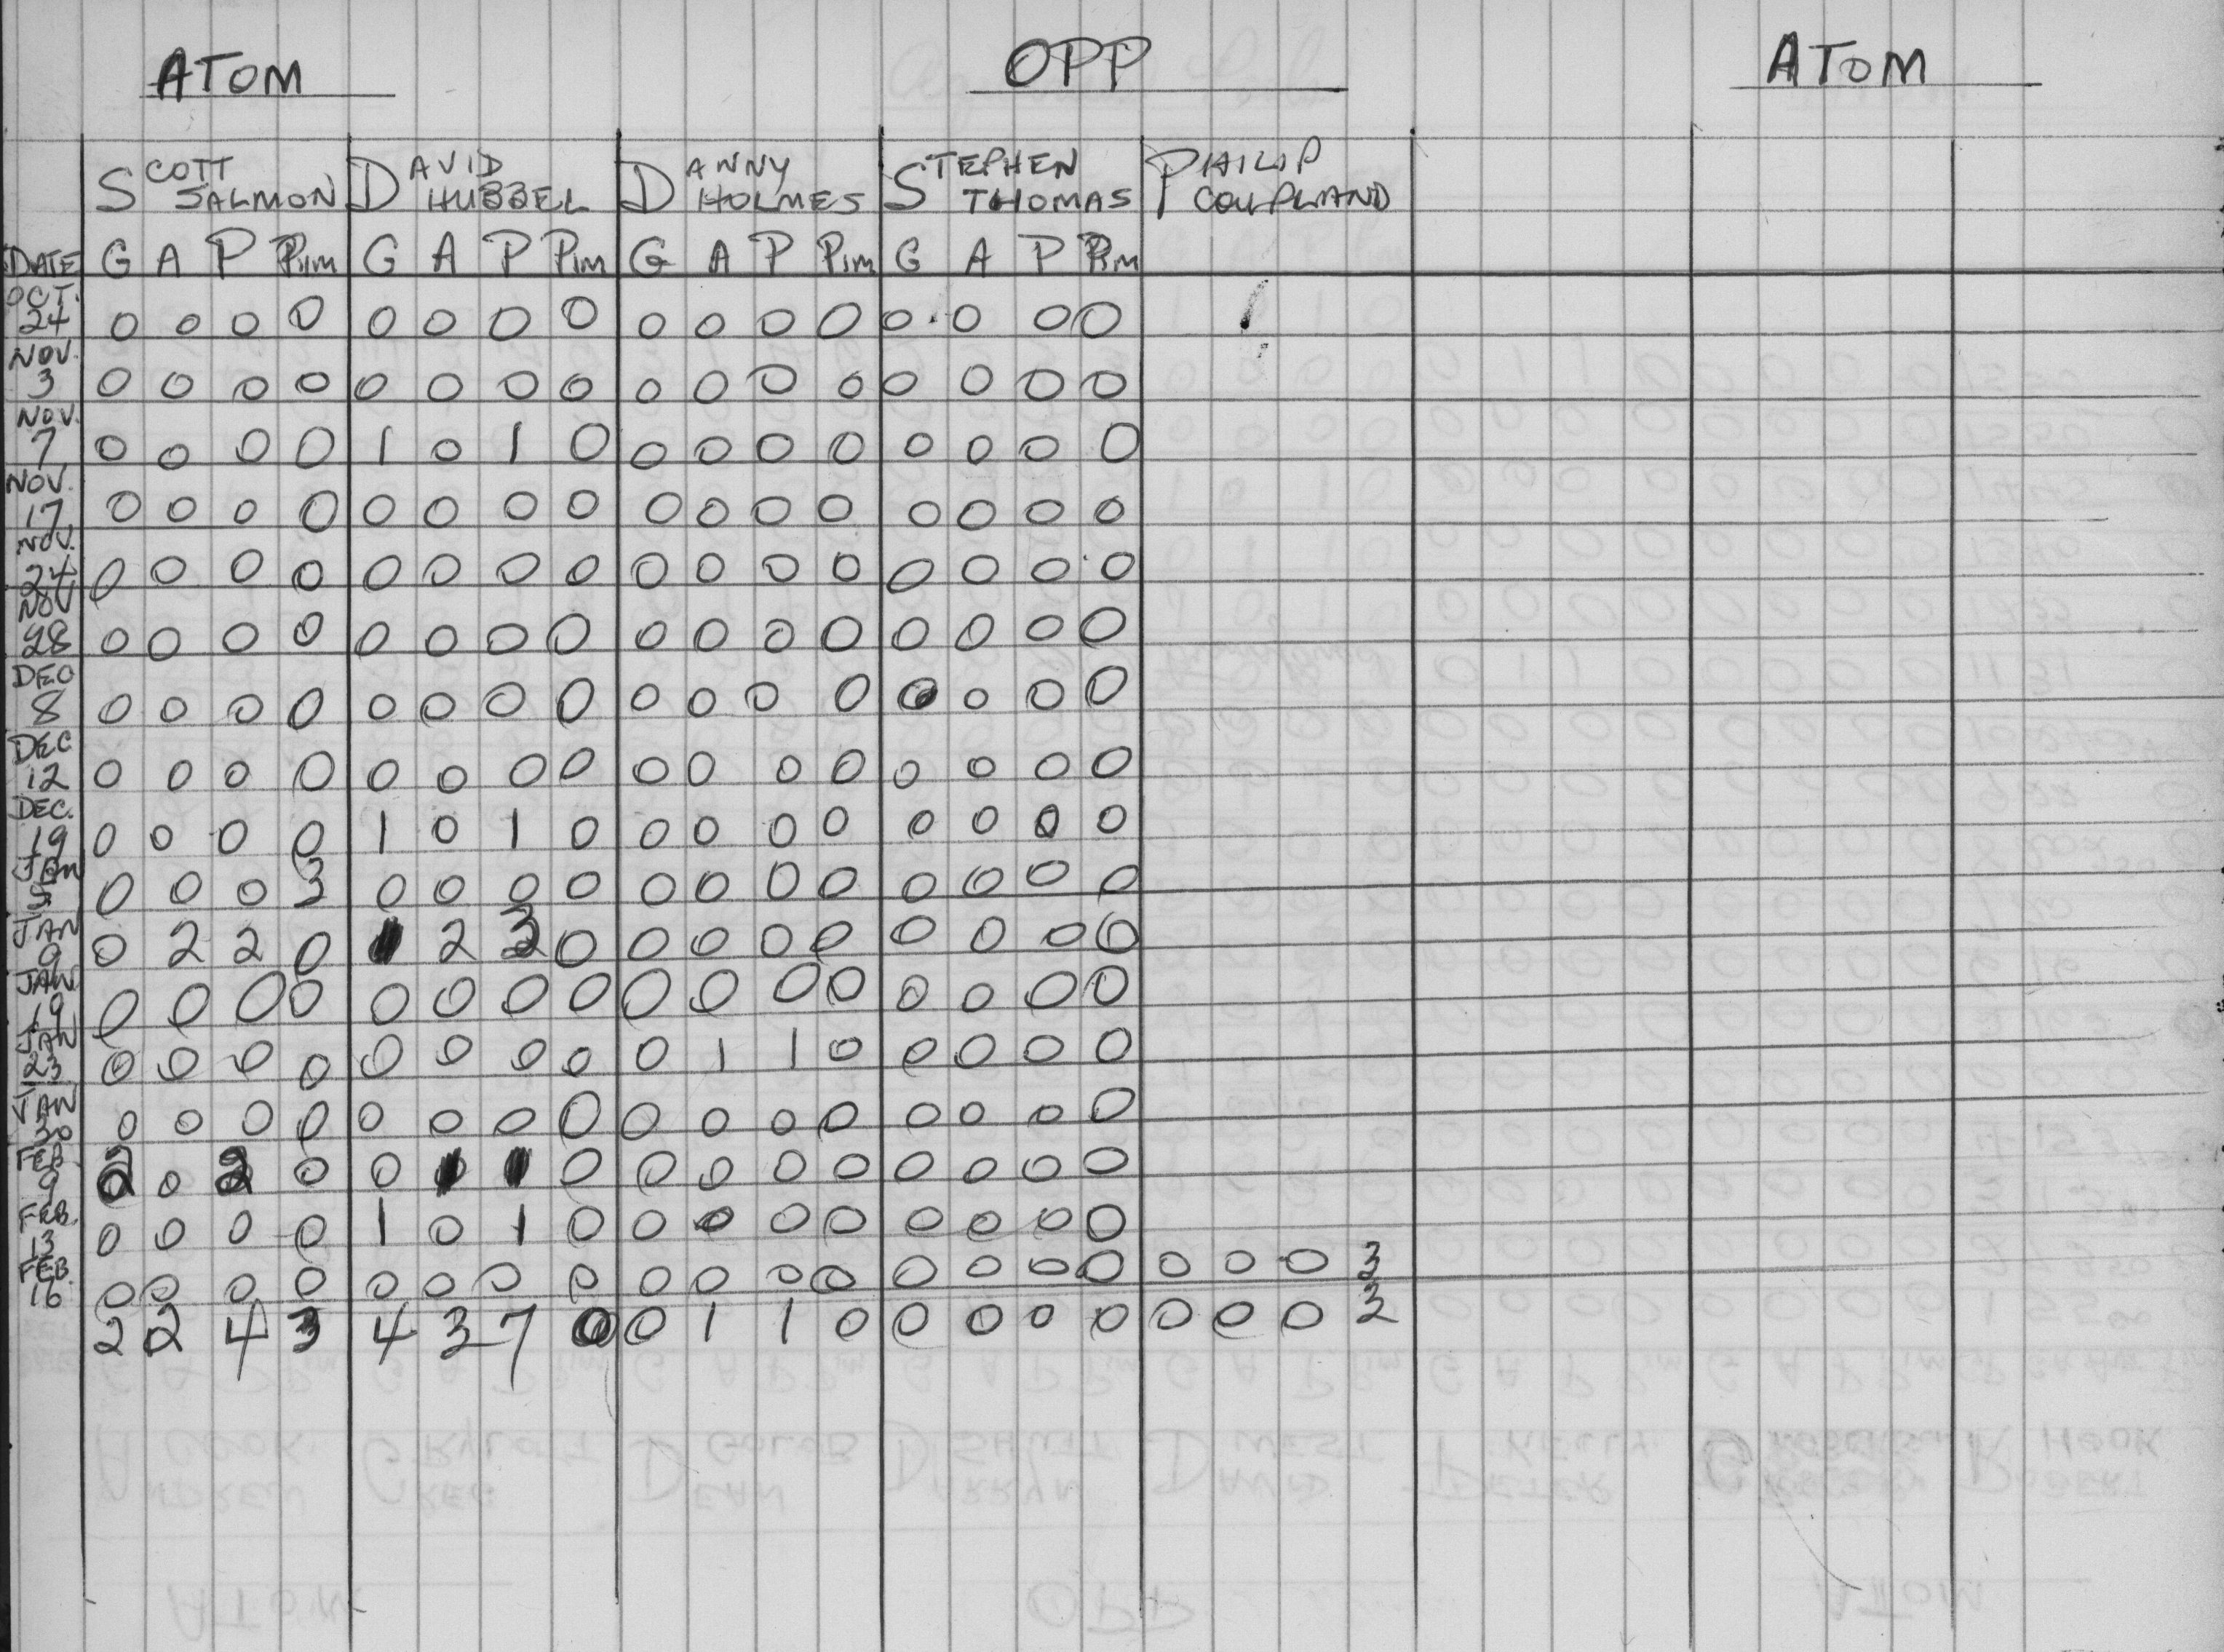 ATOM OPP ATOM
SCOTT SALMON DAVID HUBBEL DANNY HOLMES STEPHEN THOMAS PHILIP COUPLAND
DATE G A P PIM G A P PIM G A P PIM G A P PIM
OCT. 24 0 0 0 0 0 0 0 0 0 0 0 0 0 0 0 0
NOV. 3 0 0 0 0 0 0 0 0 0 0 0 0 0 0 0 0
NOV. 7 0 0 0 0 1 0 1 0 0 0 0 0 0 0 0 0
NOV. 17 0 0 0 0 0 0 0 0 0 0 0 0 0 0 0 0
NOV. 24 0 0 0 0 0 0 0 0 0 0 0 0 0 0 0 0
NOV 28 0 0 0 0 0 0 0 0 0 0 0 0 0 0 0 0
DEC 8 0 0 0 0 0 0 0 0 0 0 0 0 0 0 0 0
DEC 12 0 0 0 0 0 0 0 0 0 0 0 0 0 0 0 0
DEC. 19 0 0 0 0 1 0 1 0 0 0 0 0 0 0 0 0
JAN 0 0 0 3 0 0 0 0 0 0 0 0 0 0 0 0
JAN 9 0 2 2 0 1 2 3 0 0 0 0 0 0 0 0 0
JAN 19 0 0 0 0 0 0 0 0 0 0 0 0 0 0 0 0
JAN 23 0 0 0 0 0 0 0 0 0 1 1 0 0 0 0 0
JAN 30 0 0 0 0 0 0 0 0 0 0 0 0 0 0 0 0
FEB 9 2 0 2 0 0 1 1 0 0 0 0 0 0 0 0 0
FEB. 13 0 0 0 0 1 0 1 0 0 0 0 0 0 0 0 0
FEB. 16 0 0 0 0 0 0 0 0 0 0 0 0 0 0 0 0 0 0 0 3
2 2 4 3 4 3 7 0 0 1 1 0 0 0 0 0 0 0 0 3